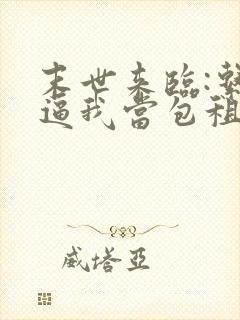 末世来臨:繫
逼我當包租
威塔亞